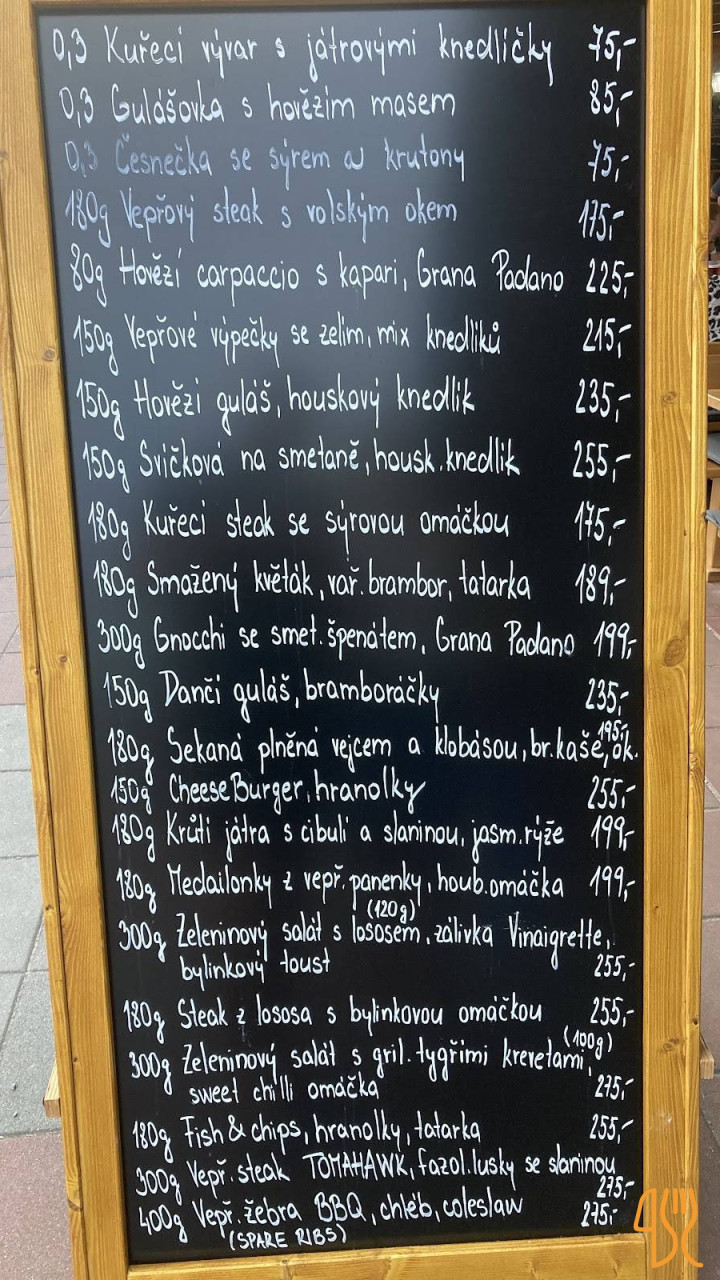 0,3 Kuřecí vývar s játrovými knedlíčky 75,-
0,3 Gulášovka s hovězím masem 85,-
0,3 Česnečka se sýrem a krutony 75,-
180g Vepřový steak s volským okem 175,-
80g Hovězí carpaccio s kapari, Grana Padano 225,-
150g Vepřové výpečky se zelím, mix knedlíků 215,-
150g Hovězí guláš, houskový knedlík 235,-
150g Svíčková na smetaně, housk. knedlík 255,-
180g Kuřecí steak se sýrovou omáčkou 175,-
180g Smažený květák, vař. brambor, tatarka 189,-
300g Gnocchi se smet. špenátem, Grana Padano 199,-
150g Dančí guláš, bramboráčky 235,-
180g Sekaná plněná vejcem a klobásou, br. kaše, ok. 195,-
150g CheeseBurger, hranolky 255,-
180g Krůtí játra s cibulí a slaninou, jasm. rýže 199,-
180g Medailonky z vepř. panenky, houb. omáčka 199,-
(120g)
300g Zeleninový salát s lososem, zálivka Vinaigrette,
bylinkový toust 255,-
180g Steak z lososa s bylinkovou omáčkou 255,-
(100g)
300g Zeleninový salát s gril. tygřími krevetami,
sweet chilli omáčka 275,-
180g Fish & chips, hranolky, tatarka 255,-
300g Vepř. steak TOMAHAWK, fazol. lusky se slaninou
275,-
400g Vepř. žebra BBQ, chléb, coleslaw 275,-
(SPARE RIBS)